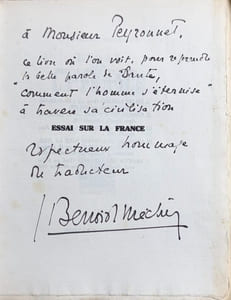 à Monsieur Peyronnet,
ce lien où l'on voit, pour reprendre
la belle parole de Dante,
"comment l'homme s'éternise"
à travers sa civilisation
ESSAI SUR LA FRANCE
respectueux hommage
du traducteur
Benoist-Méchin